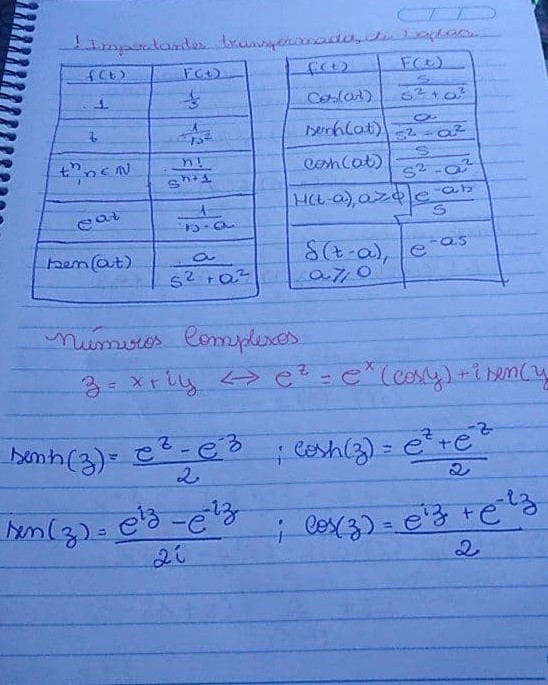 ! Importantes transformadas de Laplace
f(t) F(t)
1 1/s
t 1/s²
tⁿ, n ∈ ℕ n!/sⁿ⁺¹
e^at 1/s-a
sen(at) a/s²+a²
f(t) F(t)
cos(at) s/s²+a²
senh(at) a/s²-a²
cosh(at) s/s²-a²
H(t-a), a≥0 e^-as/s
δ(t-a), e^-as
a≥0
Números Complexos
z = x+iy ↔ e^z = e^x (cos(y)+i sen(y
senh(z) = e^z - e^-z / 2 ; cosh(z) = e^z + e^-z / 2
sen(z) = e^iz - e^-iz / 2i ; cos(z) = e^iz + e^-iz / 2